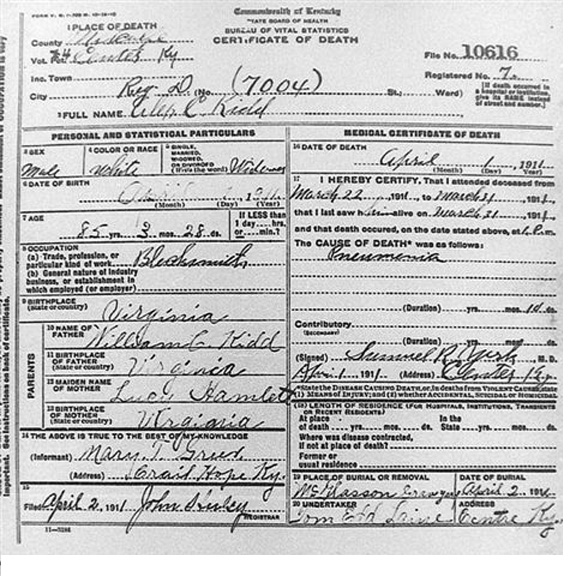 Commonwealth of Kentucky
STATE BOARD OF HEALTH
BUREAU OF VITAL STATISTICS
CERTIFICATE OF DEATH
1 PLACE OF DEATH
County
Vot. Pct. Center Ky
File No. 10616
Inc. Town
Registered No. 7.
City Reg D (No. (7004) St.; Ward)
[If death occurred in a hospital or institution, give its NAME instead of street and number.]
2 FULL NAME Kidd
PERSONAL AND STATISTICAL PARTICULARS
3 SEX Male
4 COLOR OR RACE White
5 SINGLE, MARRIED, WIDOWED, OR DIVORCED (Write the word) Widower
6 DATE OF BIRTH
April 1 1911
(Month) (Day) (Year)
7 AGE
85 yrs. 3 mos. 28 ds.
If LESS than 1 day.... hrs. or.... min.?
8 OCCUPATION
(a) Trade, profession, or particular kind of work Blacksmith
(b) General nature of industry business, or establishment in which employed (or employer)
9 BIRTHPLACE (State or country) Virginia
PARENTS
10 NAME OF FATHER William C Kidd
11 BIRTHPLACE OF FATHER (State or country) Virginia
12 MAIDEN NAME OF MOTHER Lucy Hamlett
13 BIRTHPLACE OF MOTHER (State or country) Virginia
14 THE ABOVE IS TRUE TO THE BEST OF MY KNOWLEDGE
(Informant) Mary T.
(Address) Crail Hope Ky.
15
Filed April 2, 1911 John REGISTRAR
11-3184
MEDICAL CERTIFICATE OF DEATH
16 DATE OF DEATH
April 1, 1911
(Month) (Day) (Year)
17 I HEREBY CERTIFY, That I attended deceased from
March 22, 1911, to March 31 1911,
that I last saw him alive on March 31 1911,
and that death occurred, on the date stated above, at
The CAUSE OF DEATH* was as follows:
Pneumonia
(Duration) yrs. mos. 10 ds.
Contributory (SECONDARY)
(Duration) yrs. mos. ds.
(Signed) M. D.
Apr. 1, 1911 (Address) Center Ky.
*State the DISEASE CAUSING DEATH, or, in deaths from VIOLENT CAUSES, state (1) MEANS OF INJURY; and (2) whether ACCIDENTAL, SUICIDAL or HOMICIDAL.
18 LENGTH OF RESIDENCE (FOR HOSPITALS, INSTITUTIONS, TRANSIENTS OR RECENT RESIDENTS)
At place of death yrs. mos. ds. In the State yrs. mos. ds.
Where was disease contracted, if not at place of death?
Former or usual residence
19 PLACE OF BURIAL OR REMOVAL
DATE OF BURIAL April 2 1911
20 UNDERTAKER Tom Edd
ADDRESS Centre Ky.